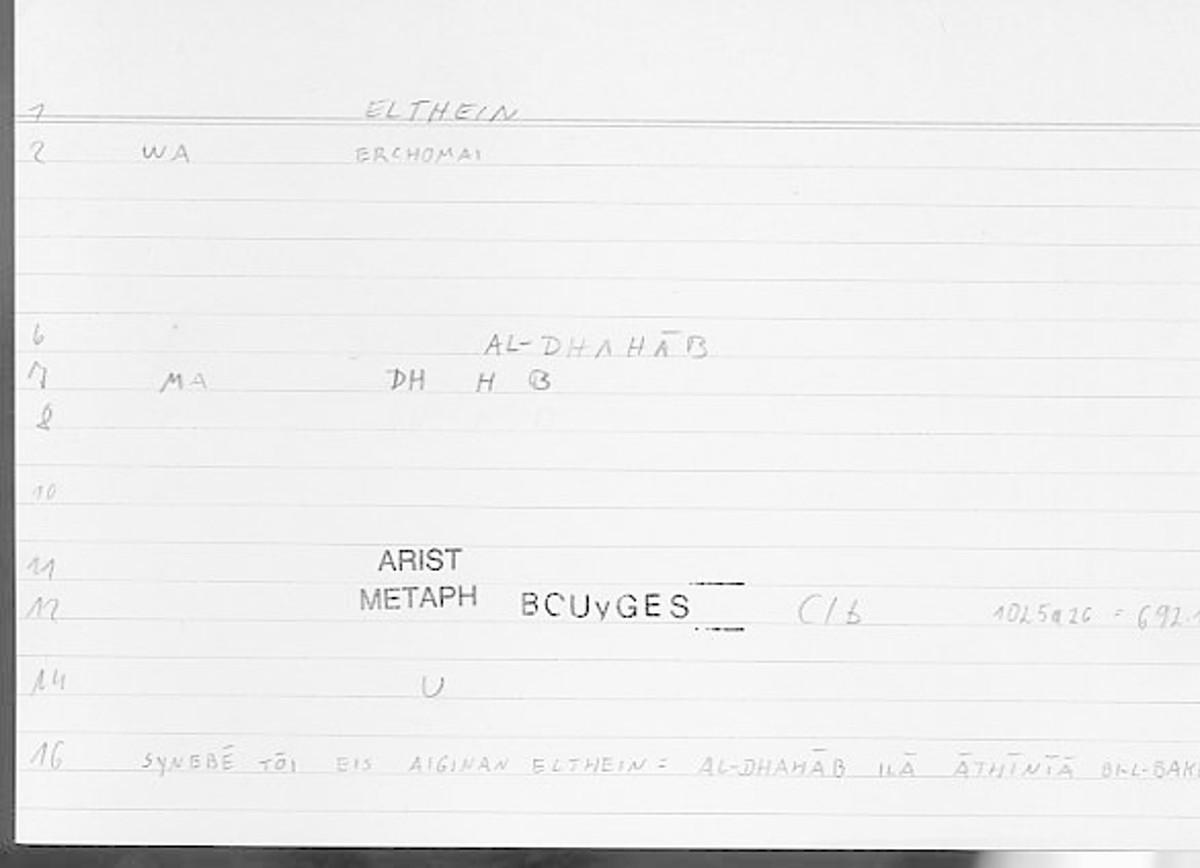 1 ELTHEIN
2 WA ERCHOMAI
6 AL-DHAHĀB
7 MA DH H B
8
10
11 ARIST
12 METAPH BOUyGES C/b 1025a26 = 692.1
14 U
16 SYNEBĒ TŌI EIS AIGINAN ELTHEIN = AL-DHAHĀB ILĀ ĀTHĪNĪĀ